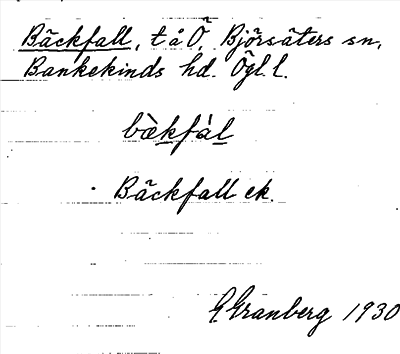 Bäckfall, t å Ö, Björsäters sn,
Bankekinds hd. Ögl. l.
bækfàl
Bäckfall ek.
G. Granberg 1930